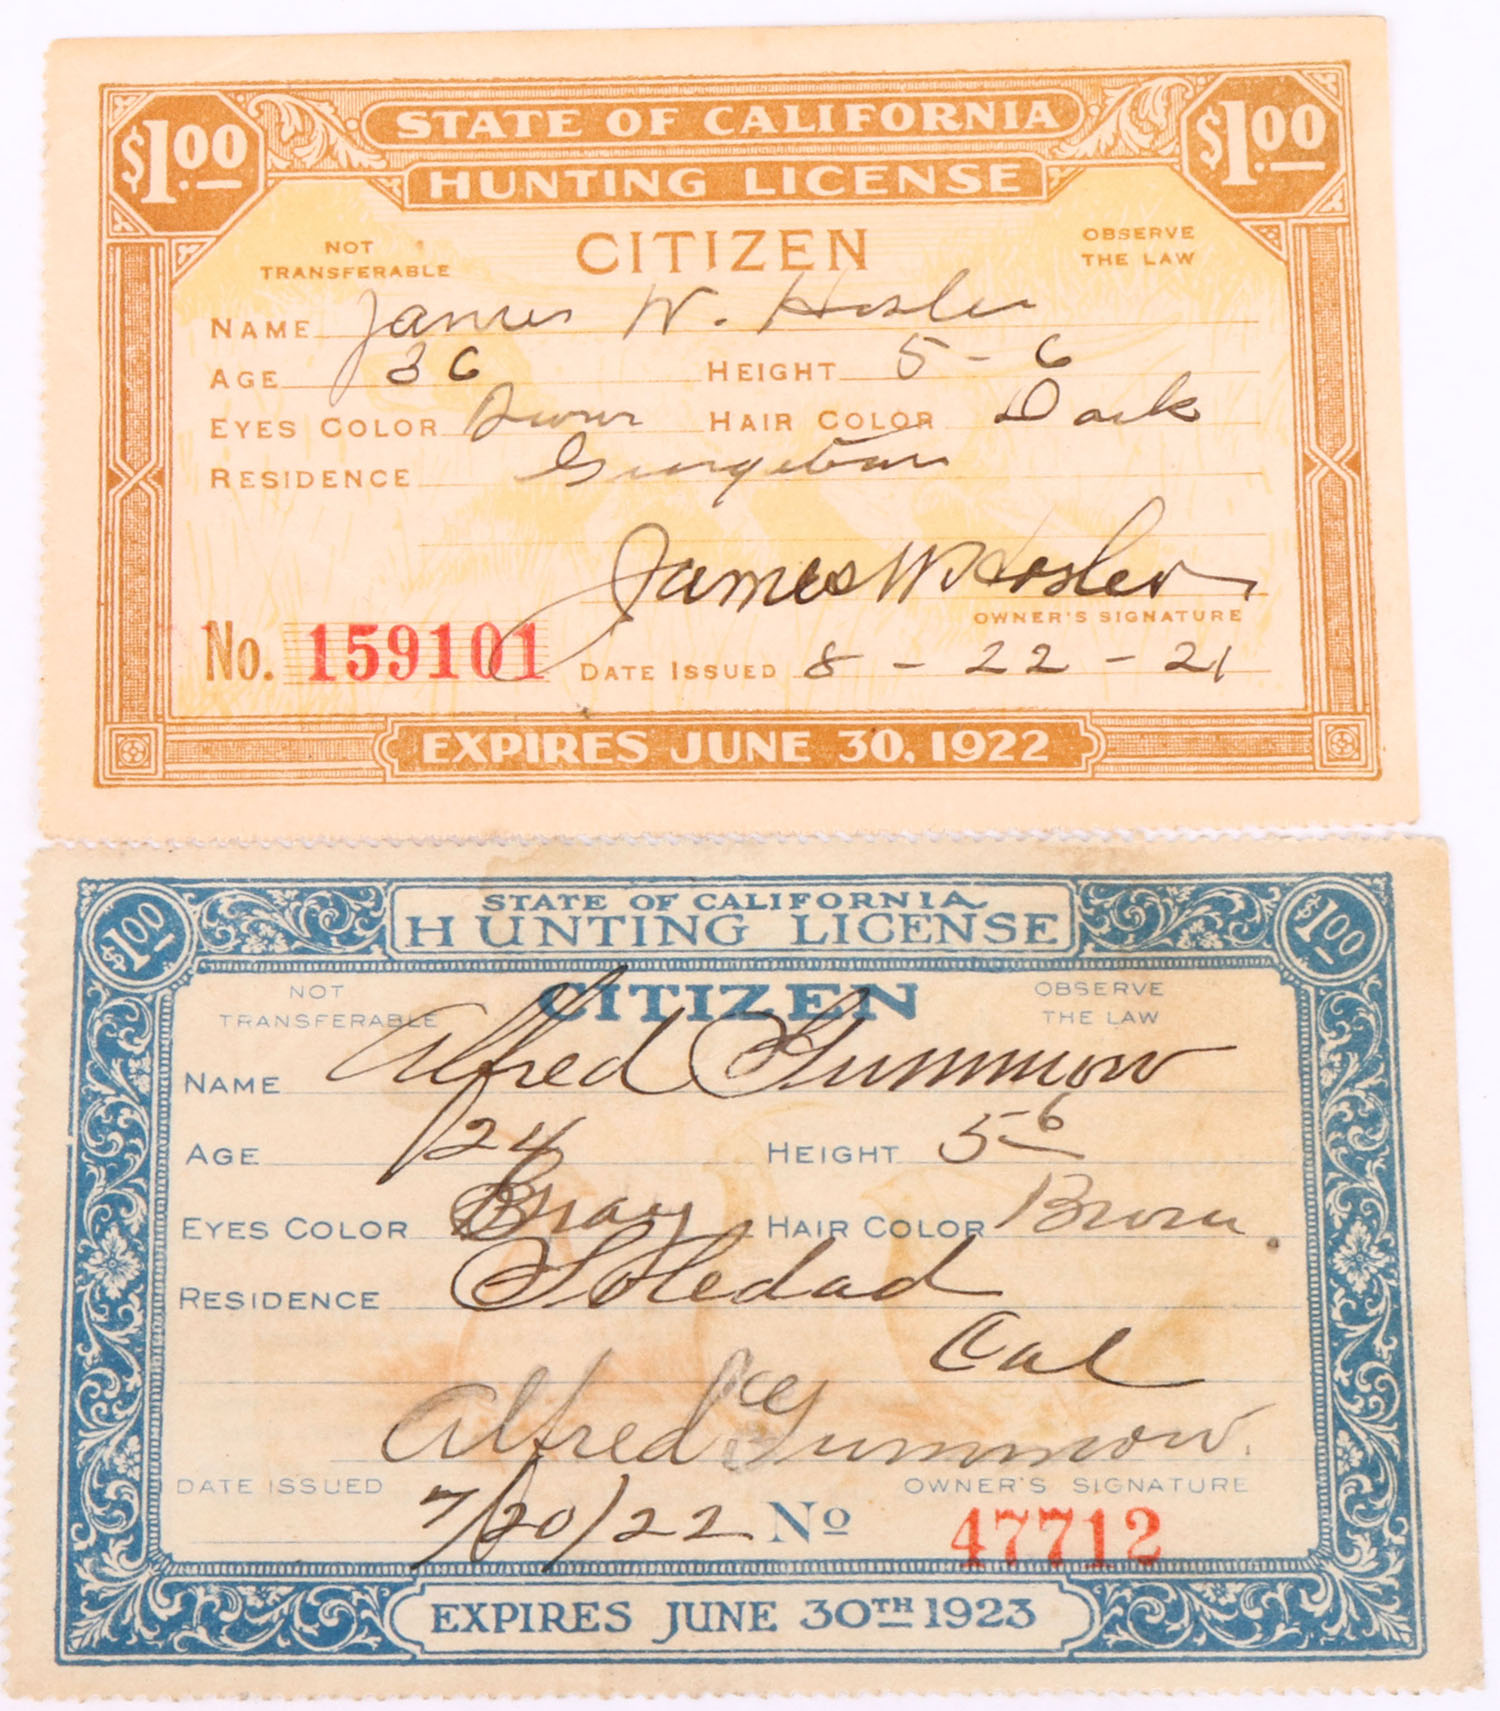 $1.00 STATE OF CALIFORNIA $1.00
HUNTING LICENSE
NOT TRANSFERABLE CITIZEN OBSERVE THE LAW
NAME James W. Hosler
AGE 36 HEIGHT 5-6
EYES COLOR HAIR COLOR Dark
RESIDENCE Georgetown
James W Hosler
OWNER'S SIGNATURE
No. 159101 DATE ISSUED 8-22-21
EXPIRES JUNE 30, 1922
$1.00 STATE OF CALIFORNIA $1.00
HUNTING LICENSE
NOT TRANSFERABLE CITIZEN OBSERVE THE LAW
NAME Alfred Gummow
AGE 24 HEIGHT 5-6
EYES COLOR Gray HAIR COLOR Brown
RESIDENCE Soledad
Cal
Alfred Gummow.
DATE ISSUED OWNER'S SIGNATURE
7/20/22 No 47712
EXPIRES JUNE 30TH 1923